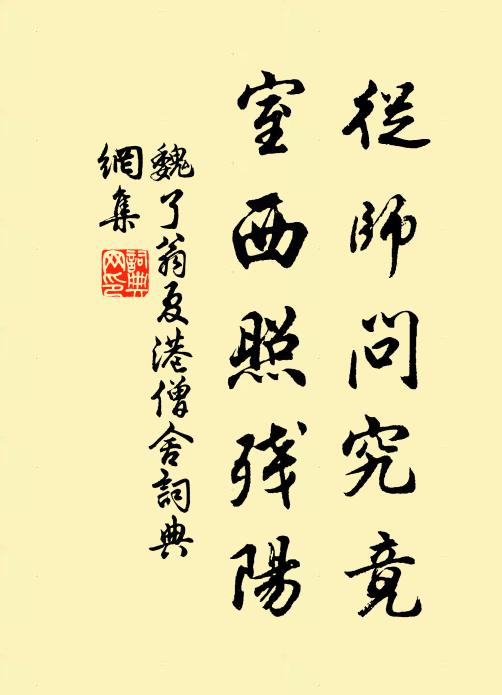 從師問究竟
室西照残陽
魏了翁夏港僧舍詞典
網集
詞典网印